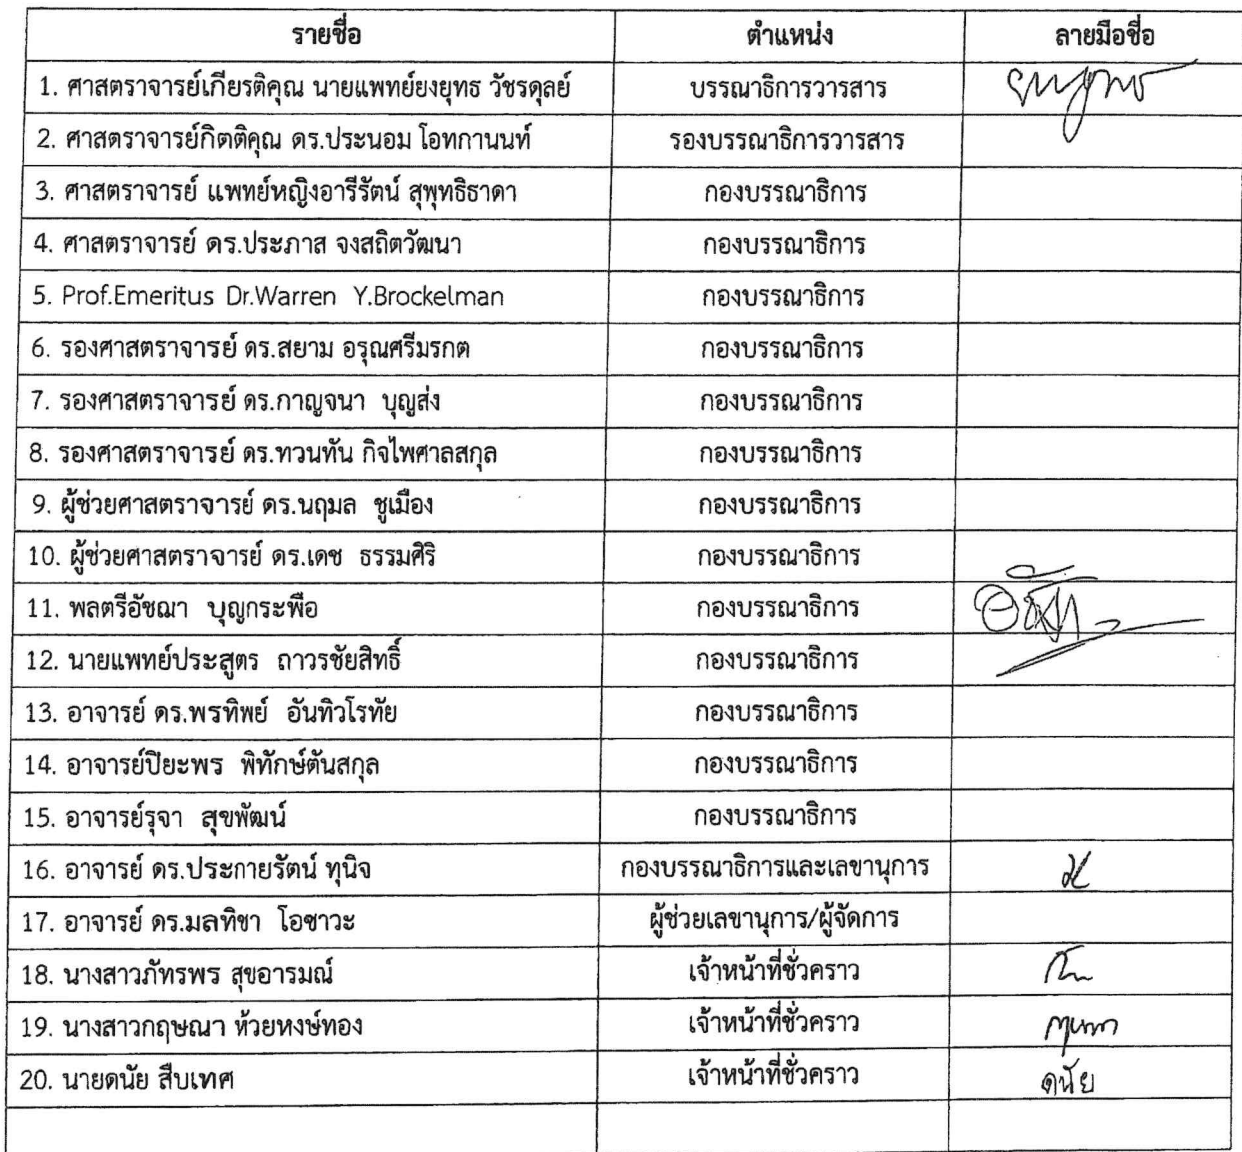 รายชื่อ ตำแหน่ง ลายมือชื่อ
1. ศาสตราจารย์เกียรติคุณ นายแพทย์ยงยุทธ วัชรดุลย์ บรรณาธิการวารสาร
2. ศาสตราจารย์กิตติคุณ ดร.ประนอม โอทกานนท์ รองบรรณาธิการวารสาร
3. ศาสตราจารย์ แพทย์หญิงอารีรัตน์ สุพุทธิธาดา กองบรรณาธิการ
4. ศาสตราจารย์ ดร.ประภาส จงสถิตวัฒนา กองบรรณาธิการ
5. Prof.Emeritus Dr.Warren Y.Brockelman กองบรรณาธิการ
6. รองศาสตราจารย์ ดร.สยาม อรุณศรีมรกต กองบรรณาธิการ
7. รองศาสตราจารย์ ดร.กาญจนา บุญส่ง กองบรรณาธิการ
8. รองศาสตราจารย์ ดร.ทวนทัน กิจไพศาลสกุล กองบรรณาธิการ
9. ผู้ช่วยศาสตราจารย์ ดร.นฤมล ชูเมือง กองบรรณาธิการ
10. ผู้ช่วยศาสตราจารย์ ดร.เดช ธรรมศิริ กองบรรณาธิการ
11. พลตรีอัชฌา บุญกระพือ กองบรรณาธิการ
12. นายแพทย์ประสูตร ถาวรชัยสิทธิ์ กองบรรณาธิการ
13. อาจารย์ ดร.พรทิพย์ อันทิวโรทัย กองบรรณาธิการ
14. อาจารย์ปิยะพร พิทักษ์ตันสกุล กองบรรณาธิการ
15. อาจารย์รุจา สุขพัฒน์ กองบรรณาธิการ
16. อาจารย์ ดร.ประกายรัตน์ ทุนิจ กองบรรณาธิการและเลขานุการ
17. อาจารย์ ดร.มลทิชา โอซาวะ ผู้ช่วยเลขานุการ/ผู้จัดการ
18. นางสาวภัทรพร สุขอารมณ์ เจ้าหน้าที่ชั่วคราว
19. นางสาวกฤษณา ห้วยหงษ์ทอง เจ้าหน้าที่ชั่วคราว
20. นายดนัย สืบเทศ เจ้าหน้าที่ชั่วคราว ดนัย